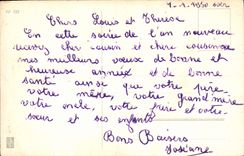 1-1-1950 soir
Chers Louis et Thérèse
En cette soirée de l'an nouveau
recevez cher cousin et chère cousine
mes meilleurs vœux de bonne et
heureuse année et de bonne
santé ainsi que votre père
votre mère, votre grand'mère
votre oncle, votre frère et votre
sœur et ses enfants
Bons Baisers
Josiane